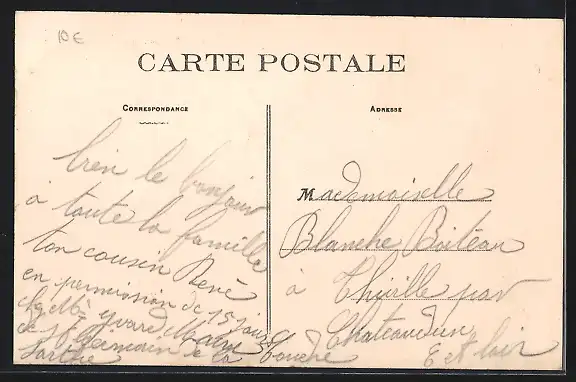 10€
CARTE POSTALE
CORRESPONDANCE
ADRESSE
bien le bonjour
à toute la famille
ton cousin René
en permission de 15 jours
chez Mr Maire
de St Germain de la Couche
Sarthe
Mademoiselle
Blanche Boiteau
à Thiville par
Chateaudun
E et Loir